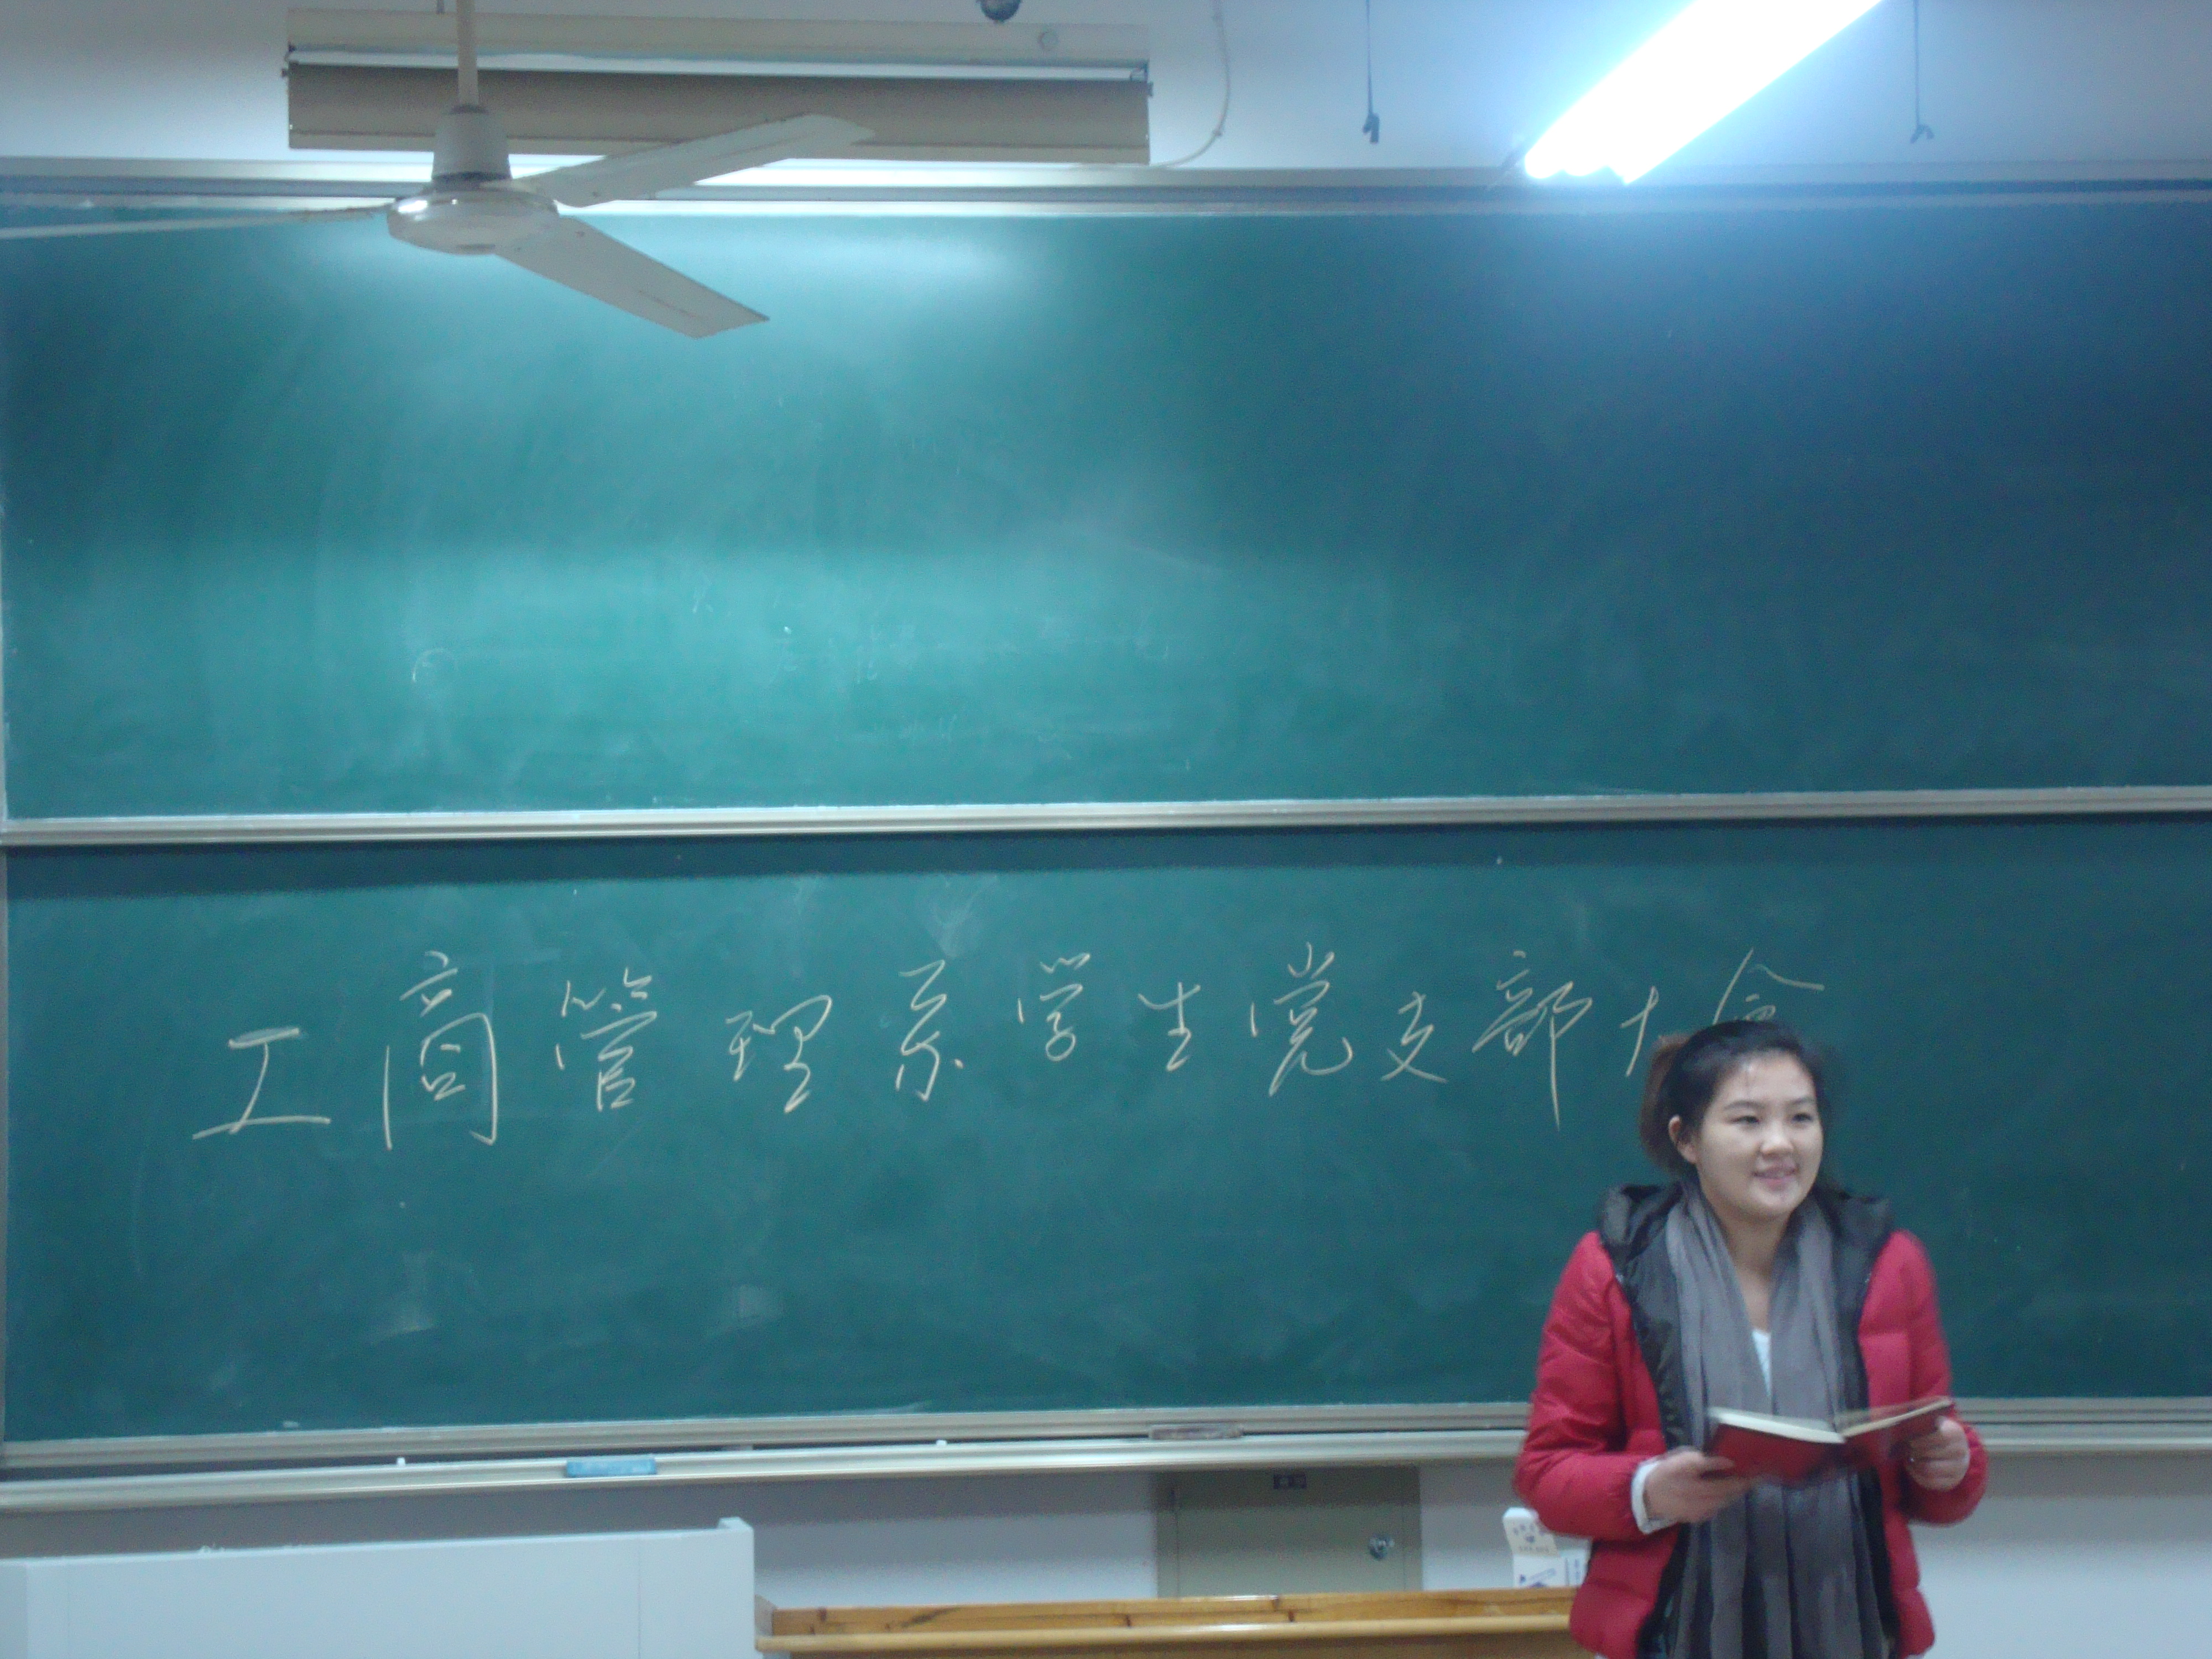 工商管理系学生党支部大會